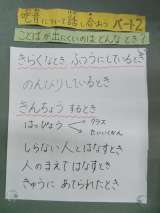 吃音について話し合おう パート2
ことばが出にくいのは どんなとき?
きらくなとき ふつうにしているとき
のんびりしているとき
きんちょうするとき
はっぴょう クラス
たいいくかん
しらない人とはなすとき
人のまえではなすとき
きゅうに あてられたとき